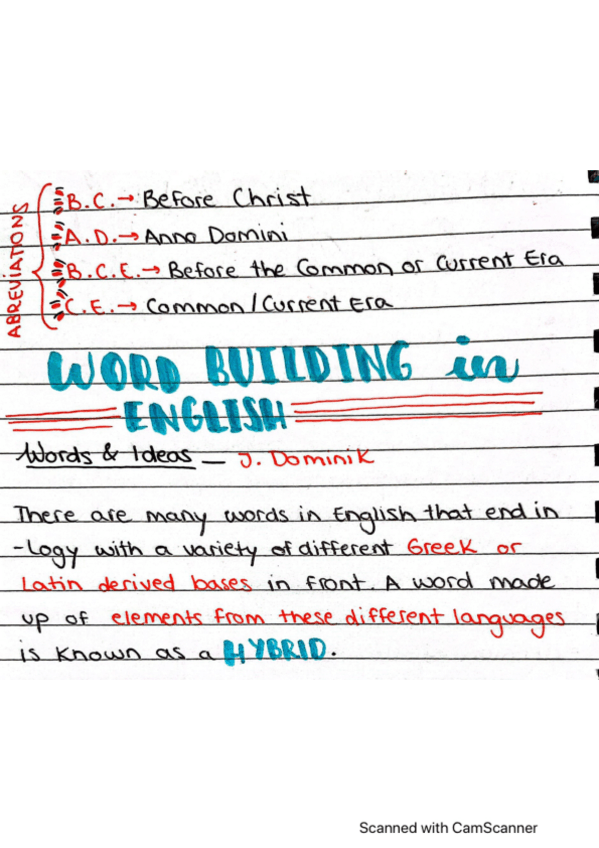 ABREVIATIONS
B.C. → Before Christ
A.D. → Anno Domini
B.C.E. → Before the Common or Current Era
C.E. → Common/Current Era
WORD BUILDING in
ENGLISH
Words & Ideas — J. Dominik
There are many words in English that end in
-logy with a variety of different Greek or
Latin derived bases in front. A word made
up of elements from these different languages
is known as a HYBRID.
Scanned with CamScanner